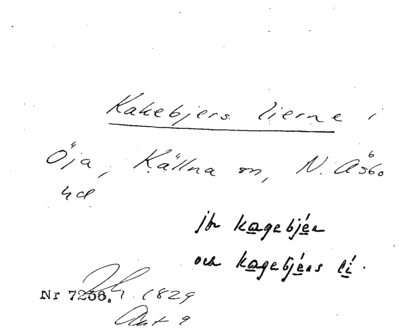 Kakebjers lierne i
Öja, Källna sn, N. Åsbo
hd
jfr kagebjér
och kagebjérs lí.
Nr 7256. 1829
Ant 9